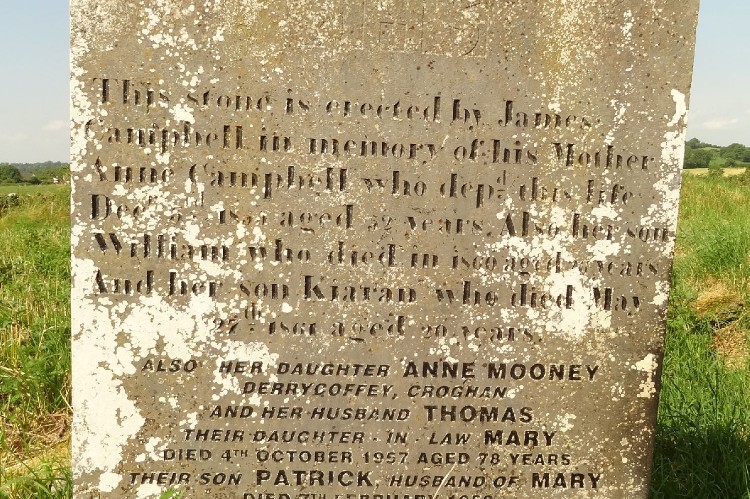 This stone is erected by James
Campbell in memory of his Mother
Anne Campbell who depd. this life
Decr. aged 52 years. Also her son
William who died in 1860 aged years
And her son Kiaran who died May
27th. 1861 aged 20 years.
ALSO HER DAUGHTER ANNE MOONEY
DERRYCOFFEY, CROGHAN
AND HER HUSBAND THOMAS
THEIR DAUGHTER - IN - LAW MARY
DIED 4TH OCTOBER 1957 AGED 78 YEARS
THEIR SON PATRICK, HUSBAND OF MARY
DIED 7TH FEBRUARY